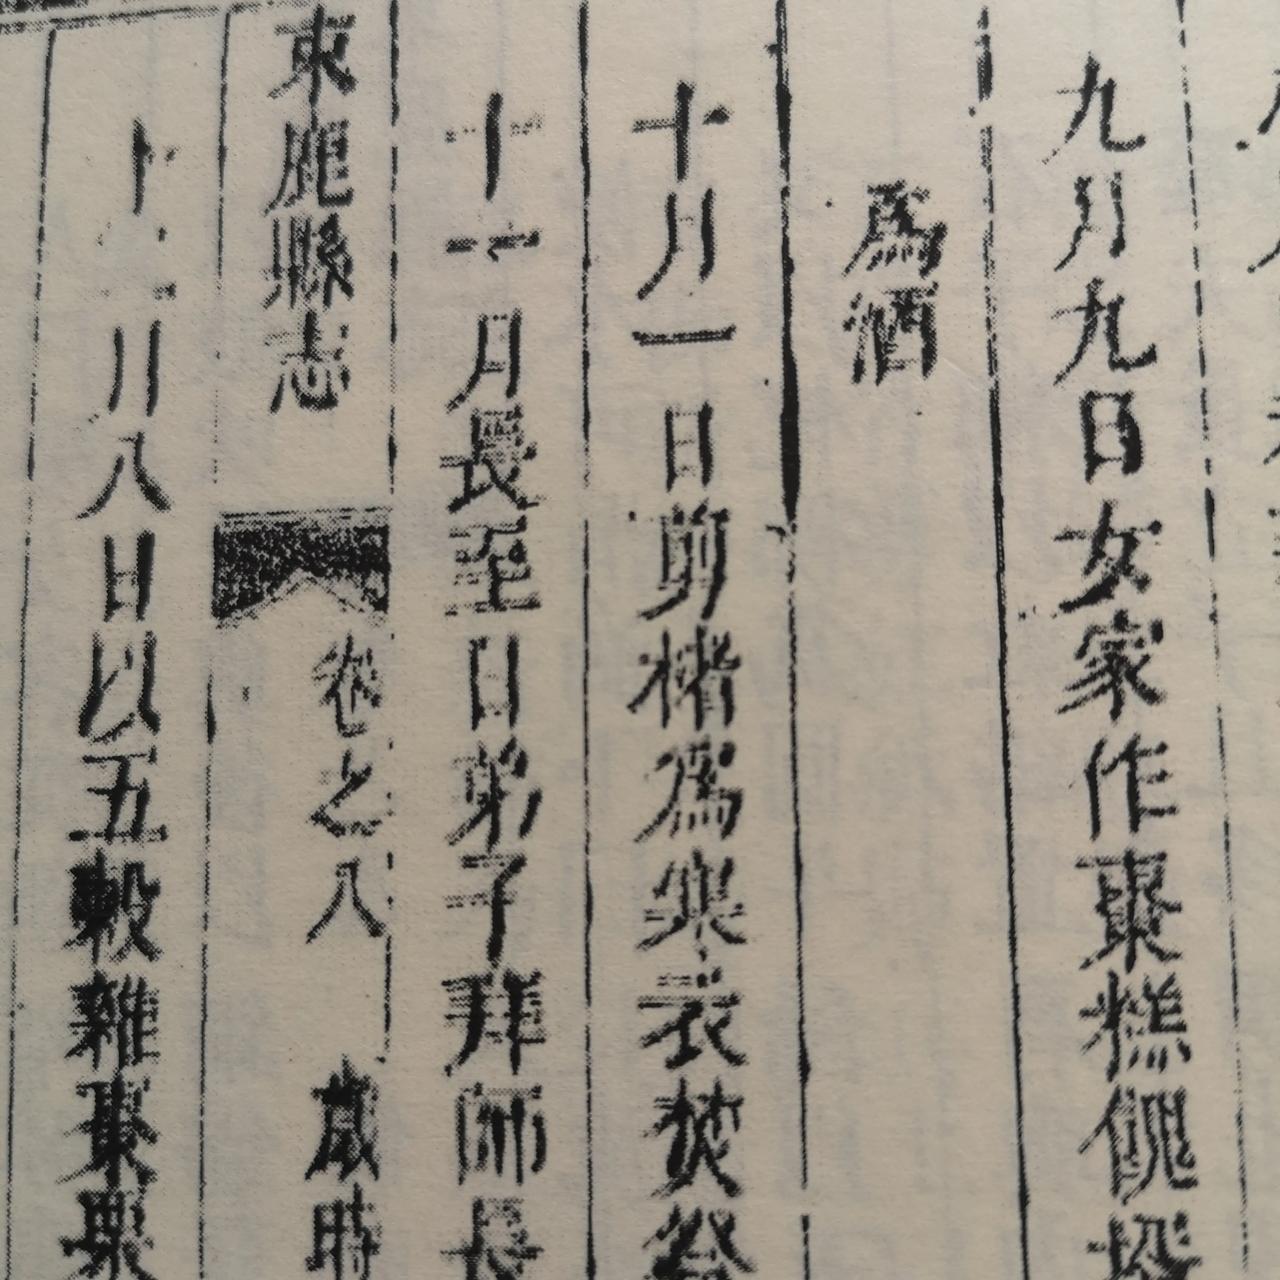 九月九日女家作棗糕餽
為酒
十月一日剪楮為寒衣焚祭
十一月長至日弟子拜師長
束鹿縣志 卷之八 歲時
十 月八日以五穀雜棗栗